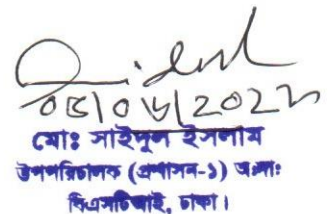 মোঃ সাইদুল ইসলাম
উপপরিচালক (প্রশাসন-১) অঃদাঃ
বিএসটিআই, ঢাকা।